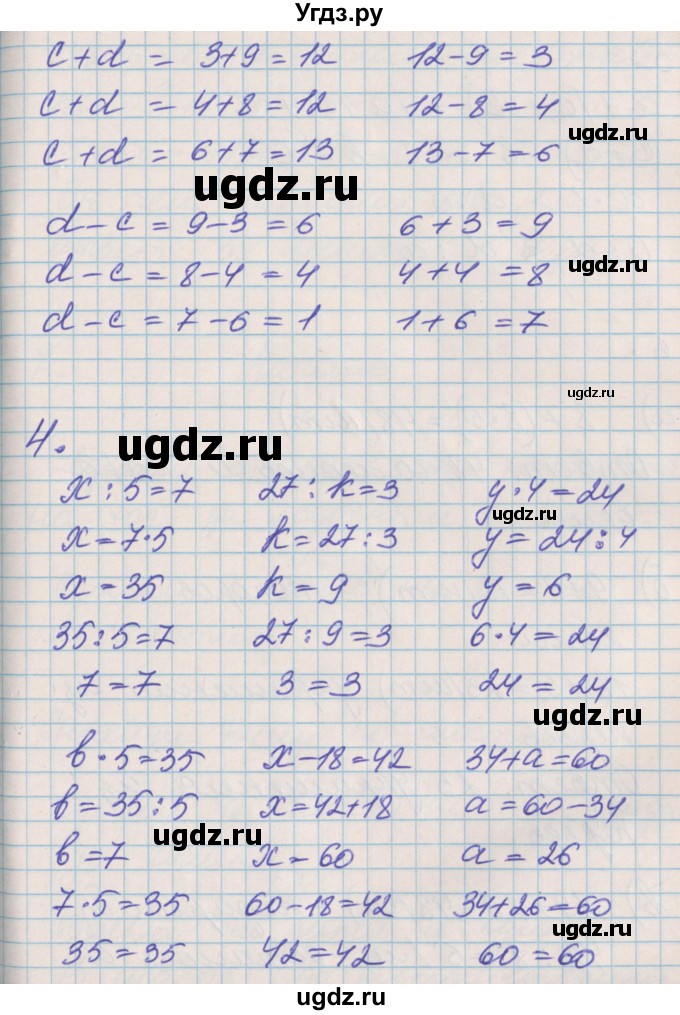 Угдз.ру
c+d = 3+9=12 12-9=3
c+d = 4+8=12 12-8=4
ugdz.ru
c+d = 6+7=13 13-7=6
ugdz.ru
d-c=9-3=6 6+3=9
d-c=8-4=4 4+4=8
ugdz.ru
d-c=7-6=1 1+6=7
ugdz.ru
4.
ugdz.ru
x:5=7 27:k=3 y·4=24
ugdz.ru
x=7·5 k=27:3 y=24:4
x=35 k=9 y=6
35:5=7 27:9=3 6·4=24
7=7 3=3 24=24
ugdz.ru
в·5=35 x-18=42 34+a=60
в=35:5 x=42+18 a=60-34
ugdz.ru
в=7 x=60 a=26
7·5=35 60-18=42 34+26=60
35=35 42=42 60=60
ugdz.ru